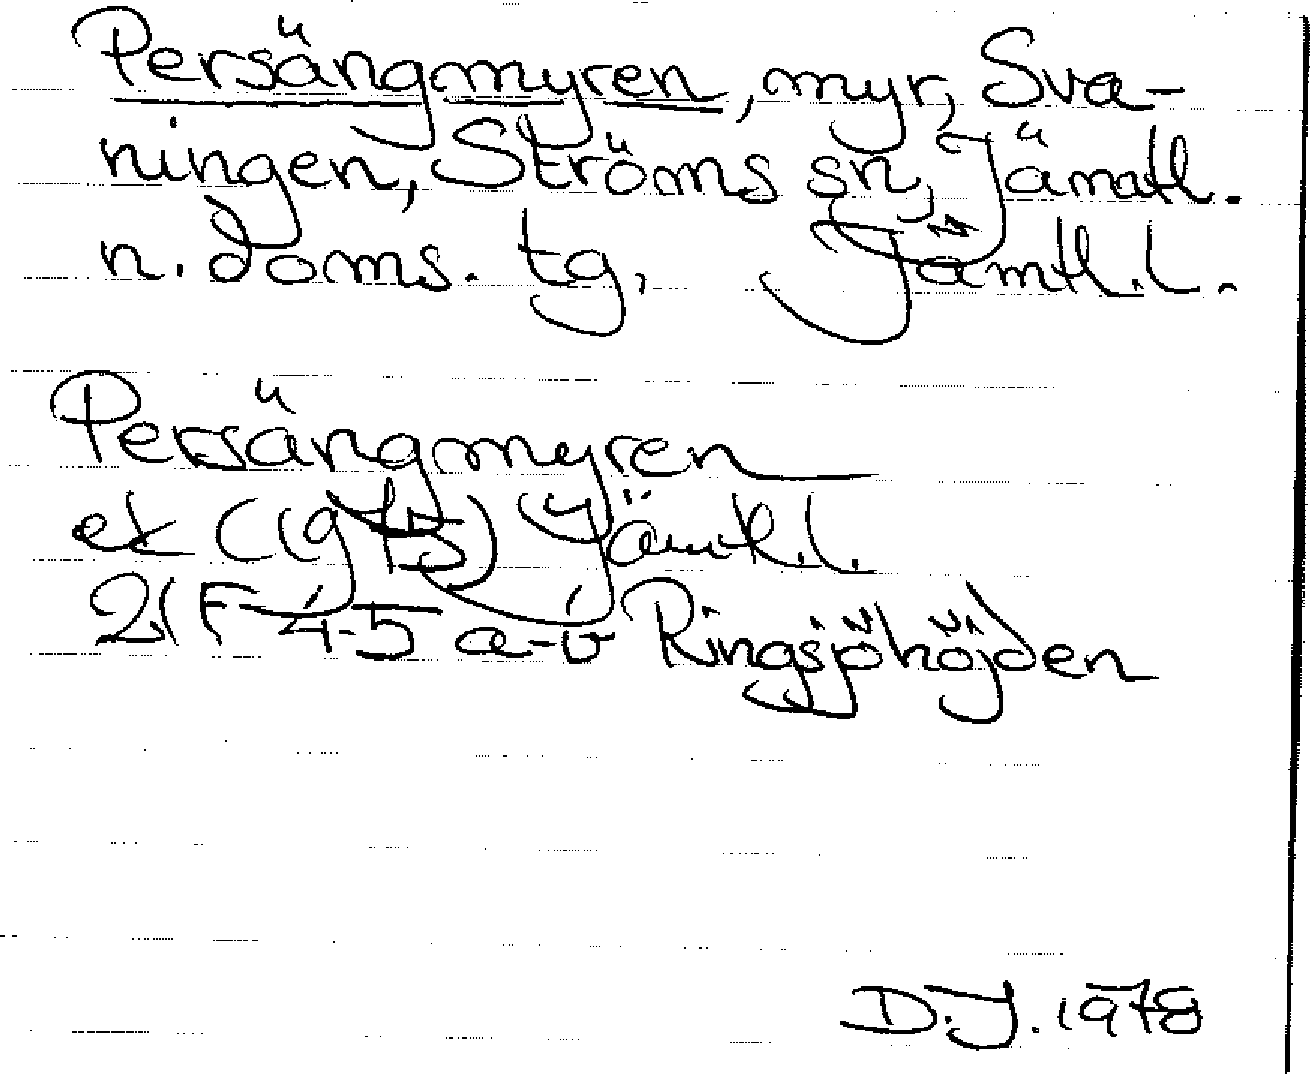 Persängmyren, myr, Sva-
ningen, Ströms sn, Jämtl.
n. doms. tg, Jämtl.l.
Persängmyren
ek (1975) Jämtl.l.
21F 4-5 a-b Ringsjöhöjden
D.J. 1978